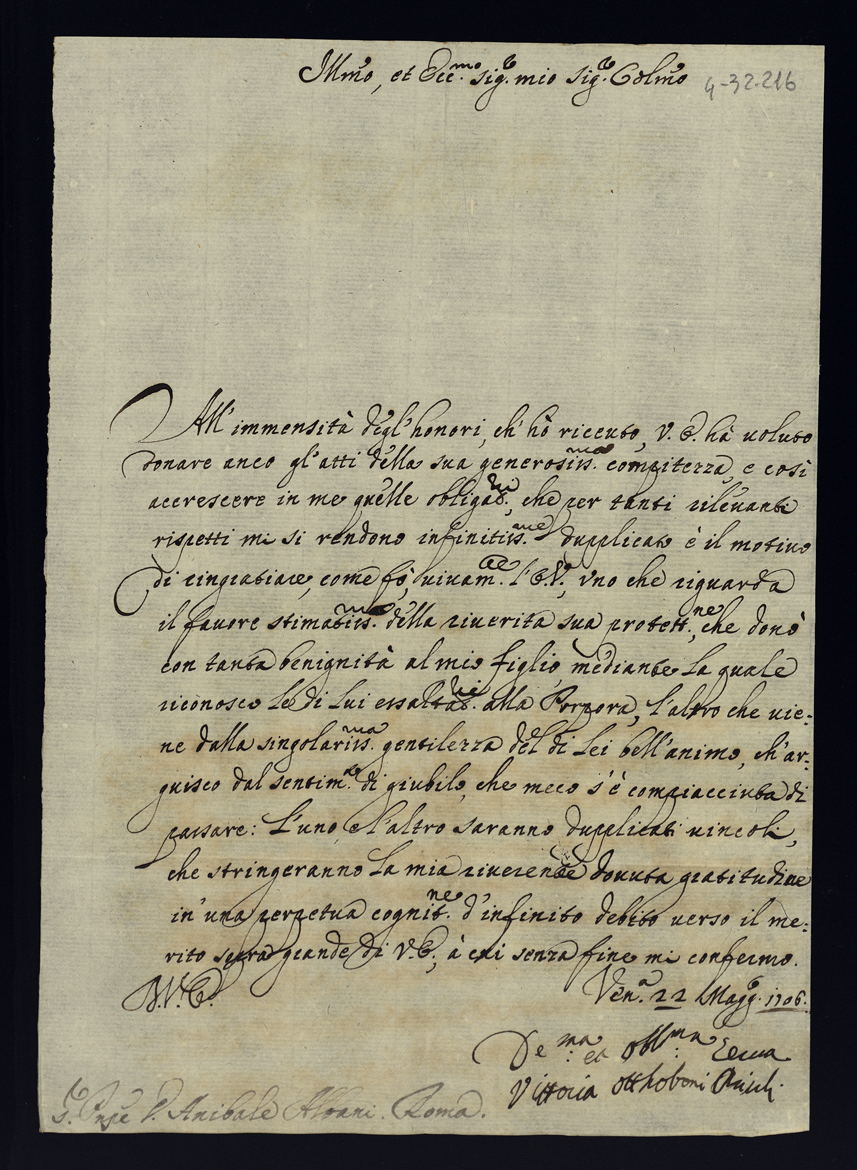 Illmo, et Ecc.mo Sig.r mio Sig.r Colmo
4-32.216
All'immensità degl'honori, ch'hò riceuto, V.E. hà uoluto
donare anco gl'atti della sua generosiss.ma compitezza, e così
accrescere in me quelle obligat.ni, che per tanti rileuanti
rispetti mi si rendono infinitiss.me Dupplicato è il motiuo
di ringratiare, come fò, uiuam.te l'E.V., vno che riguarda
il fauore stimatiss.mo della riuerita sua protett.ne, che donò
con tanta benignità al mio figlio, mediante la quale
riconosco le di lui essaltat.ni alla Porpora, l'altro che uie:
ne dalla singolariss.ma gentilezza del di Lei bell'animo, ch'ar:
guisco dal sentim.to di giubilo, che meco s'è compiacciuta di
passare: L'uno, e l'altro saranno dupplicati uincoli,
che stringeranno la mia riuerente douuta gratitudine
in'una perpetua cognit.ne d'infinito debito uerso il me:
rito sopra grande di V.E., à cui senza fine mi confermo.
Ven.a 22 Magg.o 1706.
De.ma et Obb.ma Serua
Vittoria Otthoboni
S.r Pnpe D. Anibale Albani. Roma.